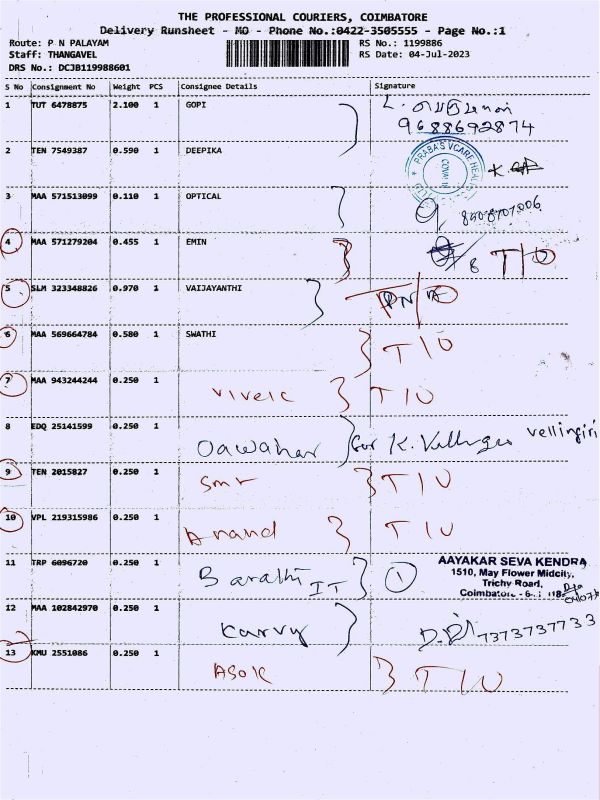 THE PROFESSIONAL COURIERS, COIMBATORE
Delivery Runsheet - MO - Phone No.:0422-3505555 - Page No.:1
Route: P N PALAYAM RS No.: 1199886
Staff: THANGAVEL RS Date: 04-Jul-2023
DRS No.: DCJB119988601
S No Consignment No Weight PCS Consignee Details Signature
1 TUT 6478875 2.100 1 GOPI
9688692874
2 TEN 7549387 0.590 1 DEEPIKA PRABA'S VCARE
3 MAA 571513099 0.110 1 OPTICAL
4 MAA 571279204 0.455 1 EMIN T/O
5 SLM 323348826 0.970 1 VAIJAYANTHI
6 MAA 569664784 0.580 1 SWATHI T/O
7 MAA 943244244 0.250 1 Vivek T/O
8 EDQ 25141599 0.250 1 for K. vellingiri
9 TEN 2015827 0.250 1 T/O
10 VPL 219315986 0.250 1 Anand T/O
11 TRP 6096720 0.250 1 Barathi IT 1 AAYAKAR SEVA KENDRA
1510, May Flower Midcity,
Trichy Road,
12 MAA 102842970 0.250 1 Karvy 7373737733
13 KMU 2551086 0.250 1 ASOK T/O